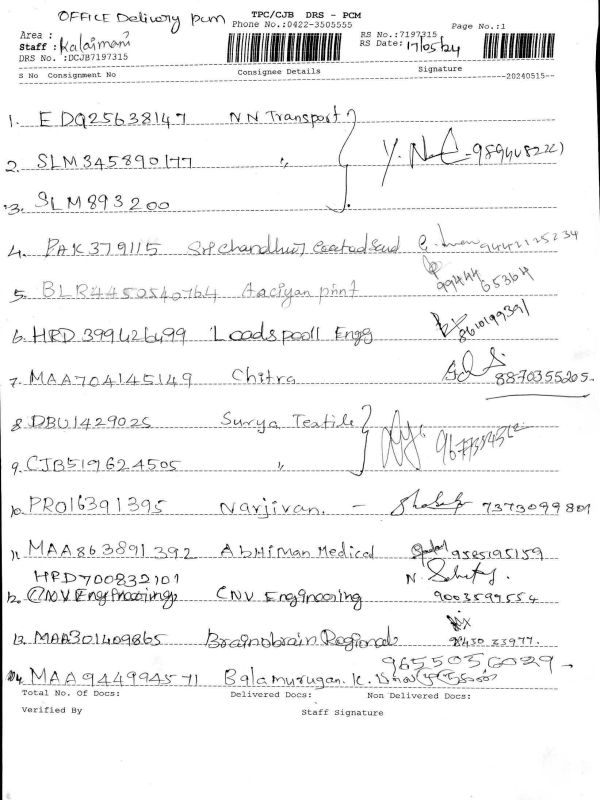 OFFICE Delivery PCM
TPC/CJB DRS - PCM
Phone No.:0422-3505555
Page No.:1
Area :
Staff : Kalaimani
DRS No. :DCJB7197315
RS No.:7197315
RS Date: 17/05/24
S No Consignment No Consignee Details Signature
--20240515--
1. EDQ25638147 NN Transport
2. SLM345890177 "
3. SLM893200
4. PAK379115 9442125234
5. BLR4450540764 Aaciyan print 99444 65364
6. HRD399426499 Loadspooll Engg 8610199391
7. MAA704145149 Chitra 8870355205
8. DBU1429025 Surya Textile
9. CJB519624505 "
10. PRO16391395 Narjivan. - 7373099801
11. MAA863891392 Abhiman Medical 9585195159
HRD700832101
12. CNV Engineering CNV Engineering 9003599554
13. MAA301409865 Brainobrain Regional
9655056029
14. MAA944994571 Balamurugan. K.
Total No. Of Docs: Delivered Docs: Non Delivered Docs:
Verified By Staff Signature